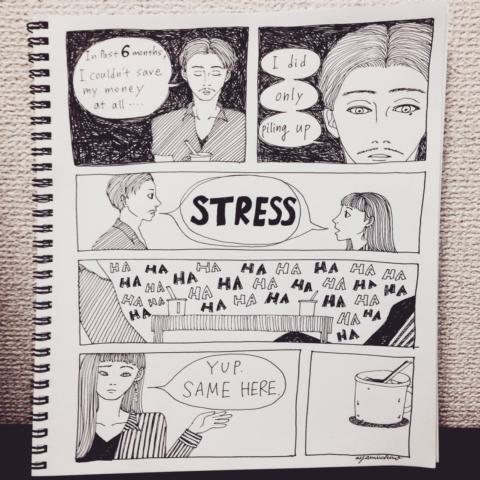 In Past 6 months,
I couldn't save
my money
at all ....
I did
only
piling up
STRESS
HA HA HA HA HA HA HA HA
HA HA HA HA HA HA HA HA
HA HA HA HA HA HA HA HA
HA HA HA HA
HA
YUP.
SAME HERE.